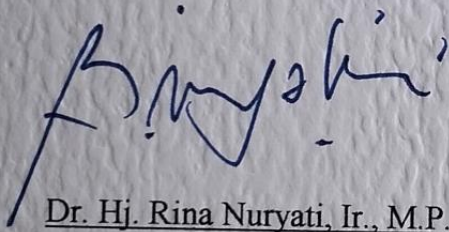 Dr. Hj. Rina Nuryati, Ir., M.P.